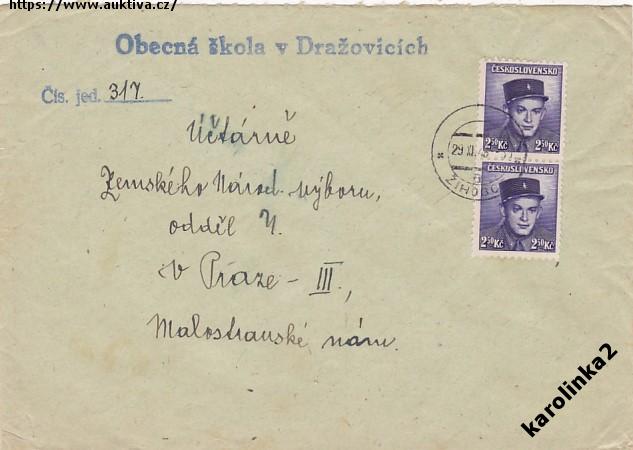 https://www.auktiva.cz/
Obecná škola v Dražovicích
Čís. jed. 317.
ČESKOSLOVENSKO
2 50 Kč 2 50 Kč
29 XI. 45
ČESKOSLOVENSKO
2 50 Kč 2 50 Kč
Účtárně
Zemského Národ. výboru,
odděl
v Praze - III.,
Malostranské nám.
karolinka2